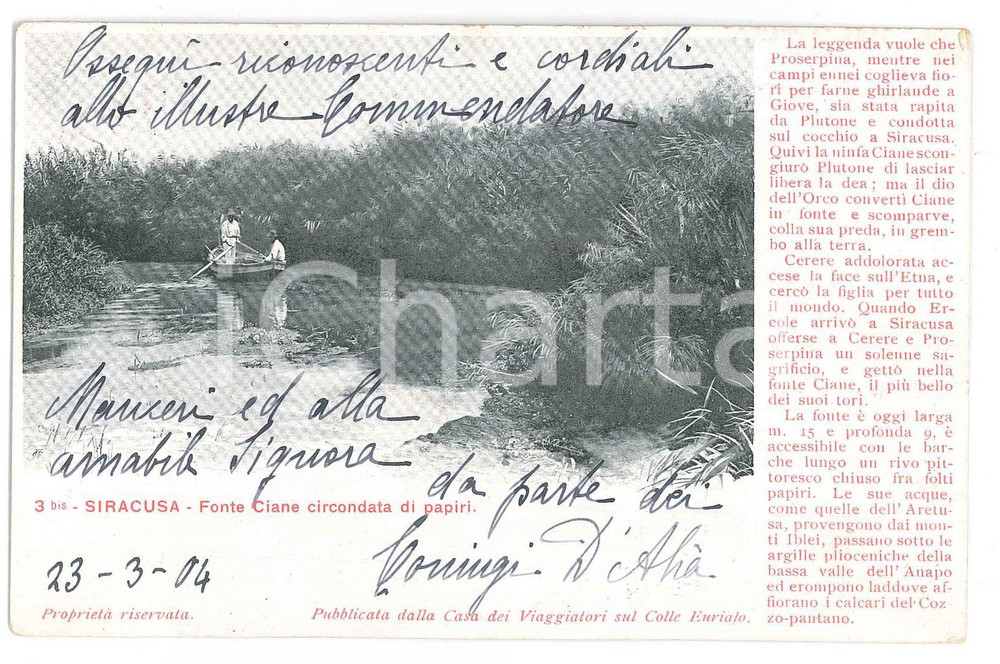 Ossequi riconoscenti e cordiali
allo illustre Commendatore
Mauceri ed alla
amabile Signora
da parte dei
Coniugi D'Alià
23-3-04
3 bis - SIRACUSA - Fonte Ciane circondata di papiri.
Proprietà riservata.
Pubblicata dalla Casa dei Viaggiatori sul Colle Eurialo.
La leggenda vuole che
Proserpina, mentre nei
campi ennei coglieva fio-
ri per farne ghirlande a
Giove, sia stata rapita
da Plutone e condotta
sul cocchio a Siracusa.
Quivi la ninfa Ciane scon-
giurò Plutone di lasciar
libera la dea; ma il dio
dell'Orco convertì Ciane
in fonte e scomparve,
colla sua preda, in grem-
bo alla terra.
Cerere addolorata ac-
cese la face sull'Etna, e
cercò la figlia per tutto
il mondo. Quando Er-
cole arrivò a Siracusa
offerse a Cerere e Pro-
serpina un solenne sa-
grificio, e gettò nella
fonte Ciane, il più bello
dei suoi tori.
La fonte è oggi larga
m. 15 e profonda 9, è
accessibile con le bar-
che lungo un rivo pit-
toresco chiuso fra folti
papiri. Le sue acque,
come quelle dell'Aretu-
sa, provengono dai mon-
ti Iblei, passano sotto le
argille plioceniche della
bassa valle dell'Anapo
ed erompono laddove af-
fiorano i calcari del Coz-
zo-pantano.
iCharta